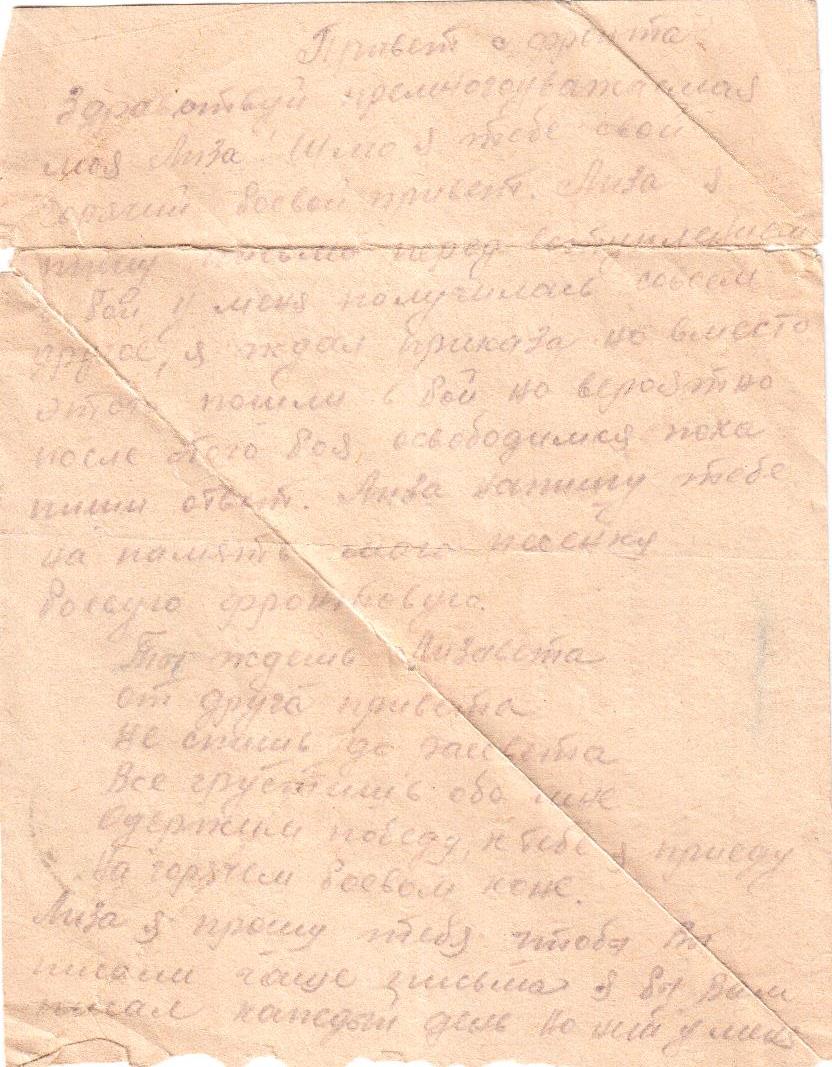 Привет с фронта.
Здравствуй премногоуважаемая
моя Лиза! Шлю я тебе свой
горячий боевой привет. Лиза я
пишу письмо перед вступлением
в бой у меня получилась совсем
другое, я ждал приказа но вместо
этого пошли в бой но вероятно
после этого боя, освободимся пока
пиши ответ. Лиза напишу тебе
на память песенку
боевую фронтовую.
Ты ждешь Лизавета
от друга привета
Не спишь до рассвета
Все грустишь обо мне
Одержим победу, к тебе я приеду
На горячем боевом коне.
Лиза я прошу тебя чтобы вы
писали чаще письма я бы вам
писал каждый день но у меня